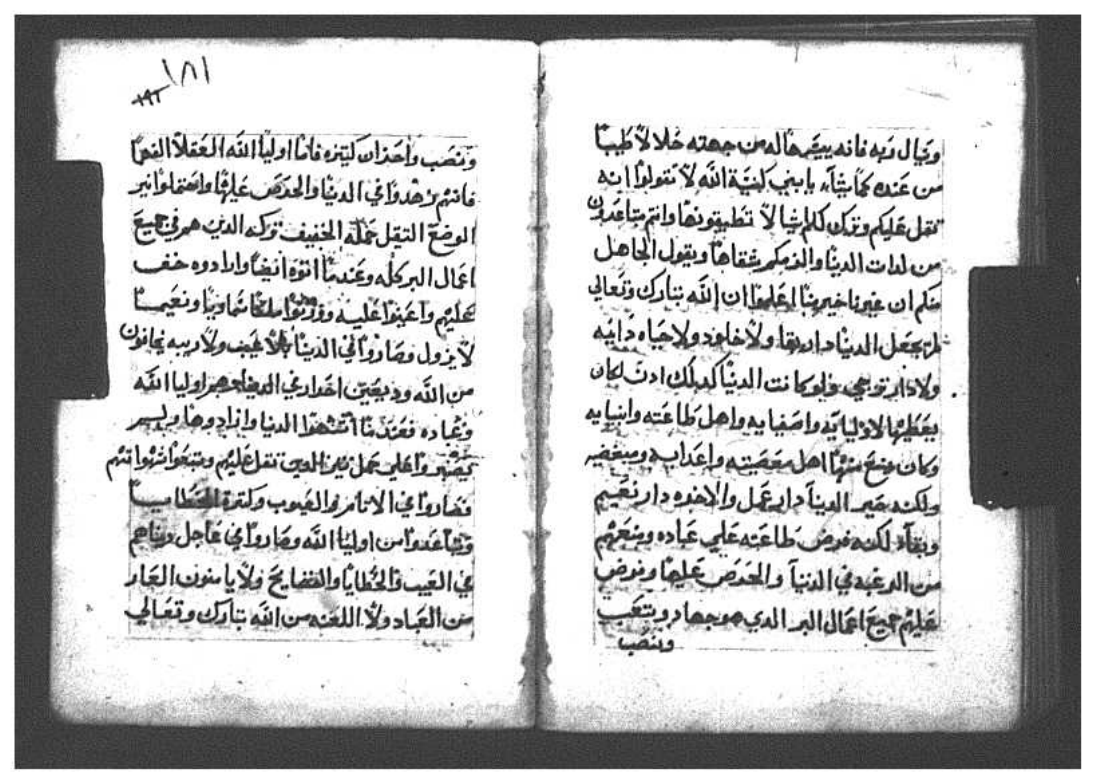 ويسال ربه فانه يبعثهاله من جهته حلالاً طيباً
من عنده كما يشاء يابني كنيسة الله لا تتولوا انه
تقل عليكم وترك كلم شيا لا تطيقونها وانتم متباعدون
من لدات الدنيا والزمكم شقاها ويقول الجاهل
منكم ان غيرنا خير منا اعلموا ان الله تبارك وتعالي
لم يجعل الدنيا دار بقا ولا خلود ولا حياه دايمه
ولا دار ولو كانت الدنيا كدلك ادن لكان
يعطيها لاوليايه واصفيايه واهل طاعته وانبيايه
وكان منع منها اهل معصيته واعدايه ومبغضيه
ولكنه صير الدنيا دار عمل والاخره دار نعيم
وبقاء لكنه فرض طاعته علي عباده ومنعهم
من الرغبه في الدنيا والحرص عليها وفرض
عليهم جميع اعمال البر الدي هو جهاد وتعب
ونصب
١٨١
١٩٢
ونصب واحزان كتيره فاما اوليا الله العقلا الفهما
فانهم زهدوا في الدنيا والحرص عليها واحتملوا نير
الوضع التقل حمله الخفيف تركه الدين هم في جميع
اعمال البر كله وعندما اتوه ايضا وارادوه خف
عليهم واعينوا عليه وورتوا ملكا سماويا ونعيما
لا يزول وصاروا في الدنيا بلا عيب ولا ريبه يخافون
من الله وديعين احرار في الدنيا هم اوليا الله
وعباده فعندما اشتهوا الدنيا وارادوها وليس
يصبروا علي حمل نير الدين تقل عليهم وتبعوا شهواتهم
فصاروا في الاتام والعيوب وكترة الخطايا
وتباعدوا من اوليا الله وصاروا في عاجل دنياهم
في العيب والخطايا والفضايح ولا يامنون العار
من العباد ولا اللعنه من الله تبارك وتعالي